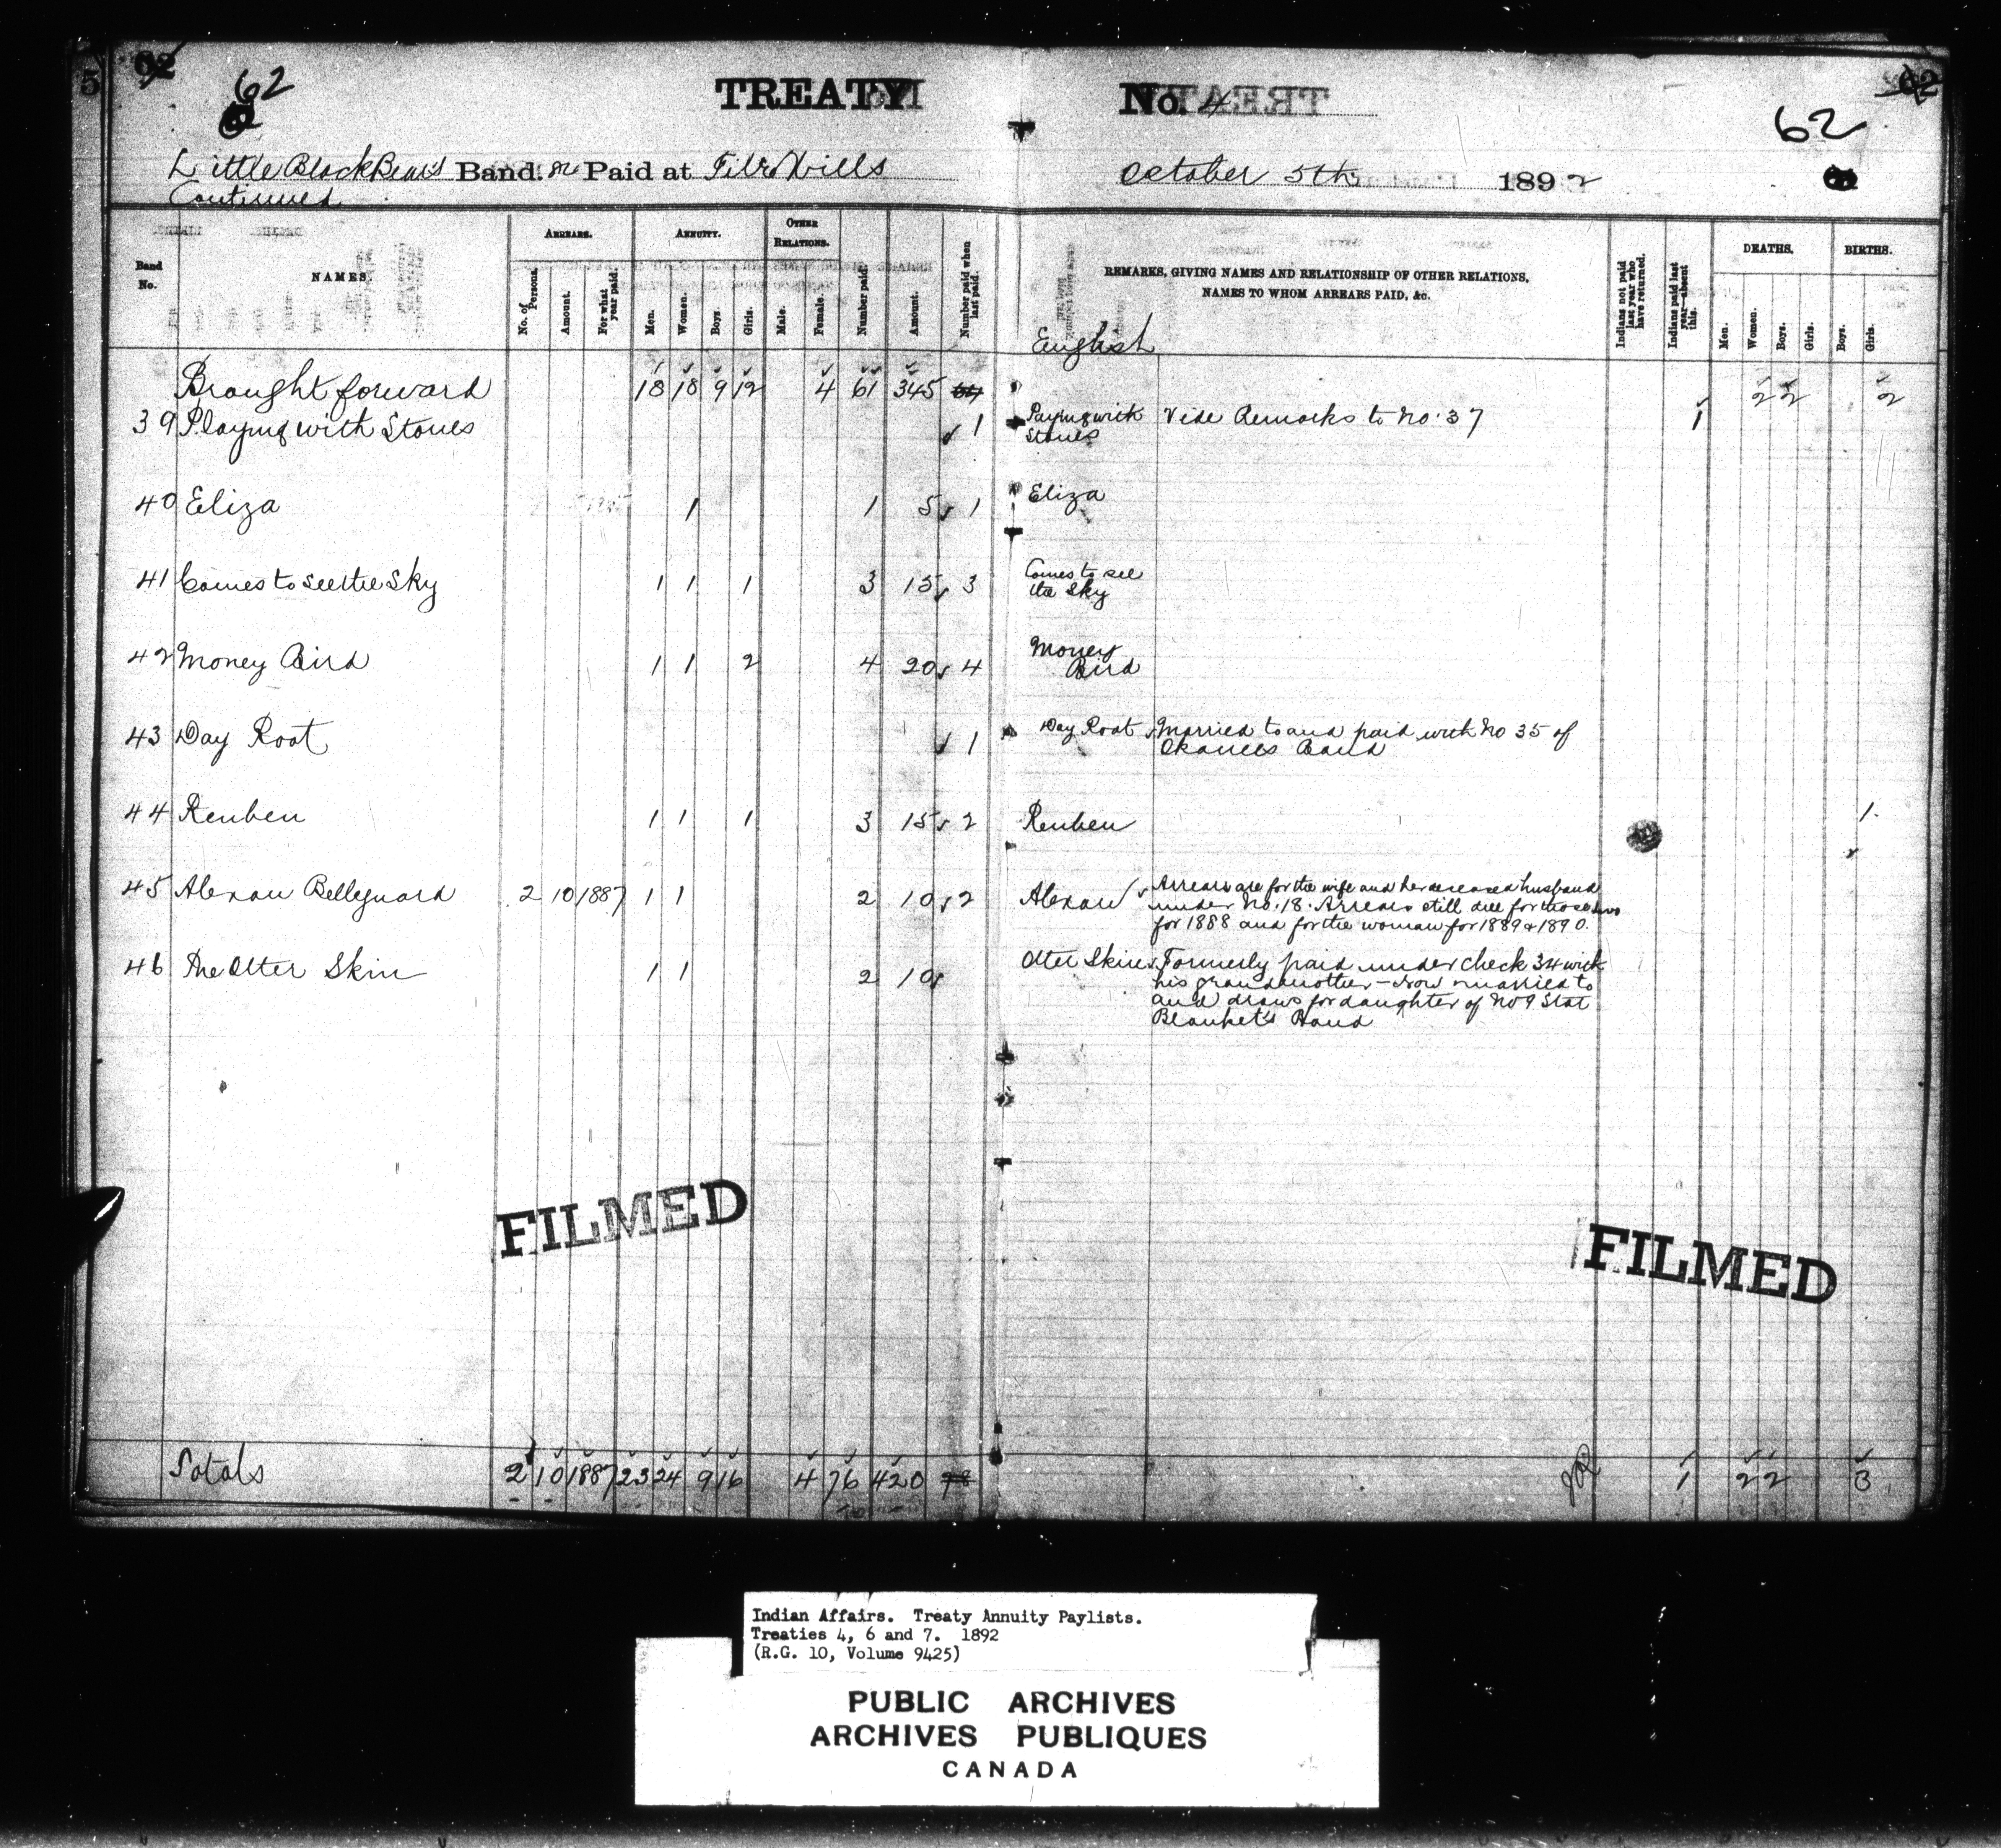 5 62 62
62 62
TREATY No. 4
Little Black Bear's Band. Paid at File Hills October 5th 1892
Continued
Band No. NAMES ARREARS. No. of Persons. Amount. For what year paid. ANNUITY. Men. Women. Boys. Girls. OTHER RELATIONS. Male. Female. Number paid. Amount. Number paid when last paid. REMARKS, GIVING NAMES AND RELATIONSHIP OF OTHER RELATIONS, NAMES TO WHOM ARREARS PAID, &c. Indians not paid last year who have returned. Indians paid last year—absent this. DEATHS. Men. Women. Boys. Girls. BIRTHS. Boys. Girls.
English
Brought forward 18 18 9 12 4 61 345 2 2 2
39 Playing with Stones 1 Paying with Stones Vide Remarks to No. 37 1
40 Eliza 1 1 5 1 Eliza
41 Comes to see the Sky 1 1 1 3 15 3 Comes to see the Sky
42 Money Bird 1 1 2 4 20 4 Money Bird
43 Day Root 1 Day Root Married to and paid with No 35 of
Okanees Band
44 Reuben 1 1 1 3 15 2 Reuben 1
45 Alexan Bellegnard 2 10 1887 1 1 2 10 2 Alexan Arrears are for the wife and her deceased husband
under No. 18. Arrears still due for those two
for 1888 and for the woman for 1889 & 1890.
46 The Otter Skin 1 1 2 10 Otter Skin Formerly paid under check 34 with
his grandmother - Now married to
and draws for daughter of No 9 Star
Blanket's Band
FILMED
FILMED
Totals 2 10 1887 23 24 9 16 4 76 420 1 2 2 3
Indian Affairs. Treaty Annuity Paylists.
Treaties 4, 6 and 7. 1892
(R.G. 10, Volume 9425)
PUBLIC ARCHIVES
ARCHIVES PUBLIQUES
CANADA